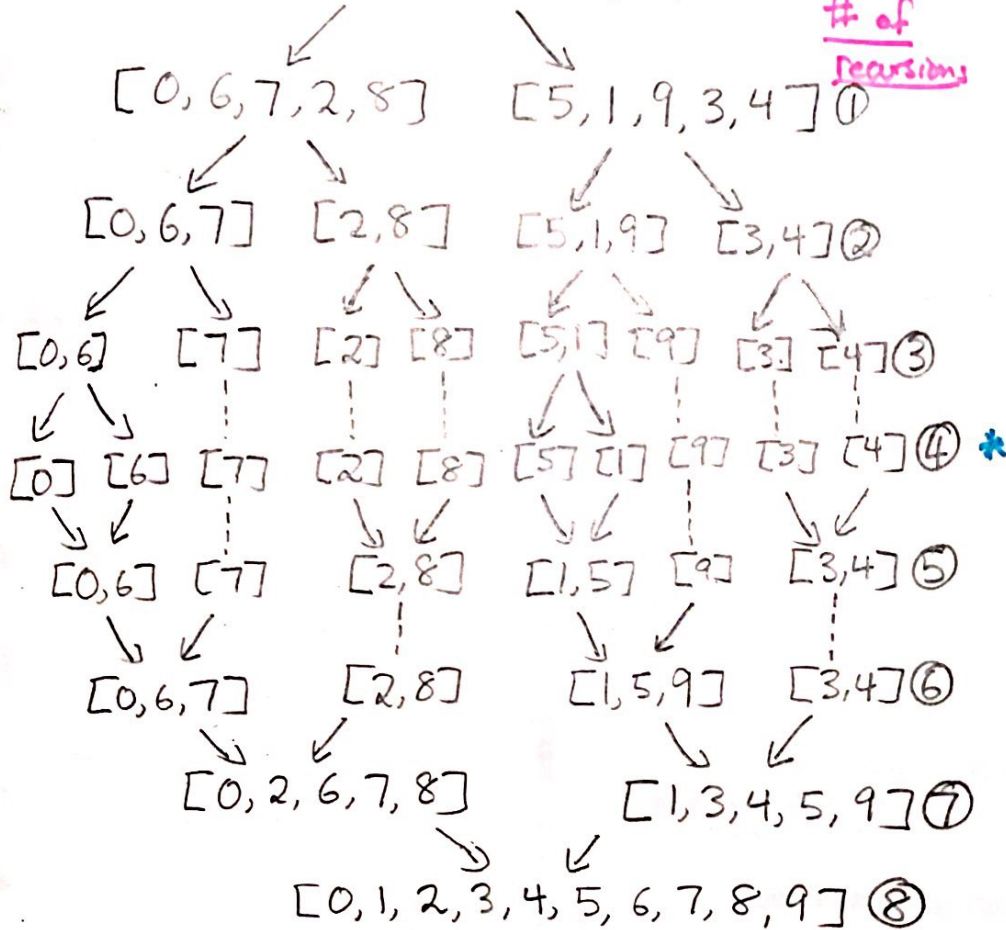 # of
recursions
[0, 6, 7, 2, 8] [5, 1, 9, 3, 4] ①
[0, 6, 7] [2, 8] [5, 1, 9] [3, 4] ②
[0, 6] [7] [2] [8] [5, 1] [9] [3] [4] ③
[0] [6] [7] [2] [8] [5] [1] [9] [3] [4] ④ *
[0, 6] [7] [2, 8] [1, 5] [9] [3, 4] ⑤
[0, 6, 7] [2, 8] [1, 5, 9] [3, 4] ⑥
[0, 2, 6, 7, 8] [1, 3, 4, 5, 9] ⑦
[0, 1, 2, 3, 4, 5, 6, 7, 8, 9] ⑧